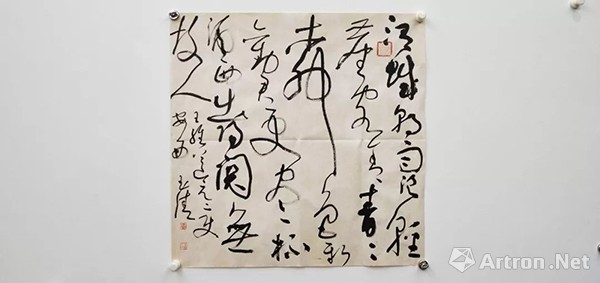 渭城朝雨浥輕
塵客舍青青
柳色新
勸君更盡一杯
酒西出陽關無
故人
王維送元二使
安西
Artron.Net